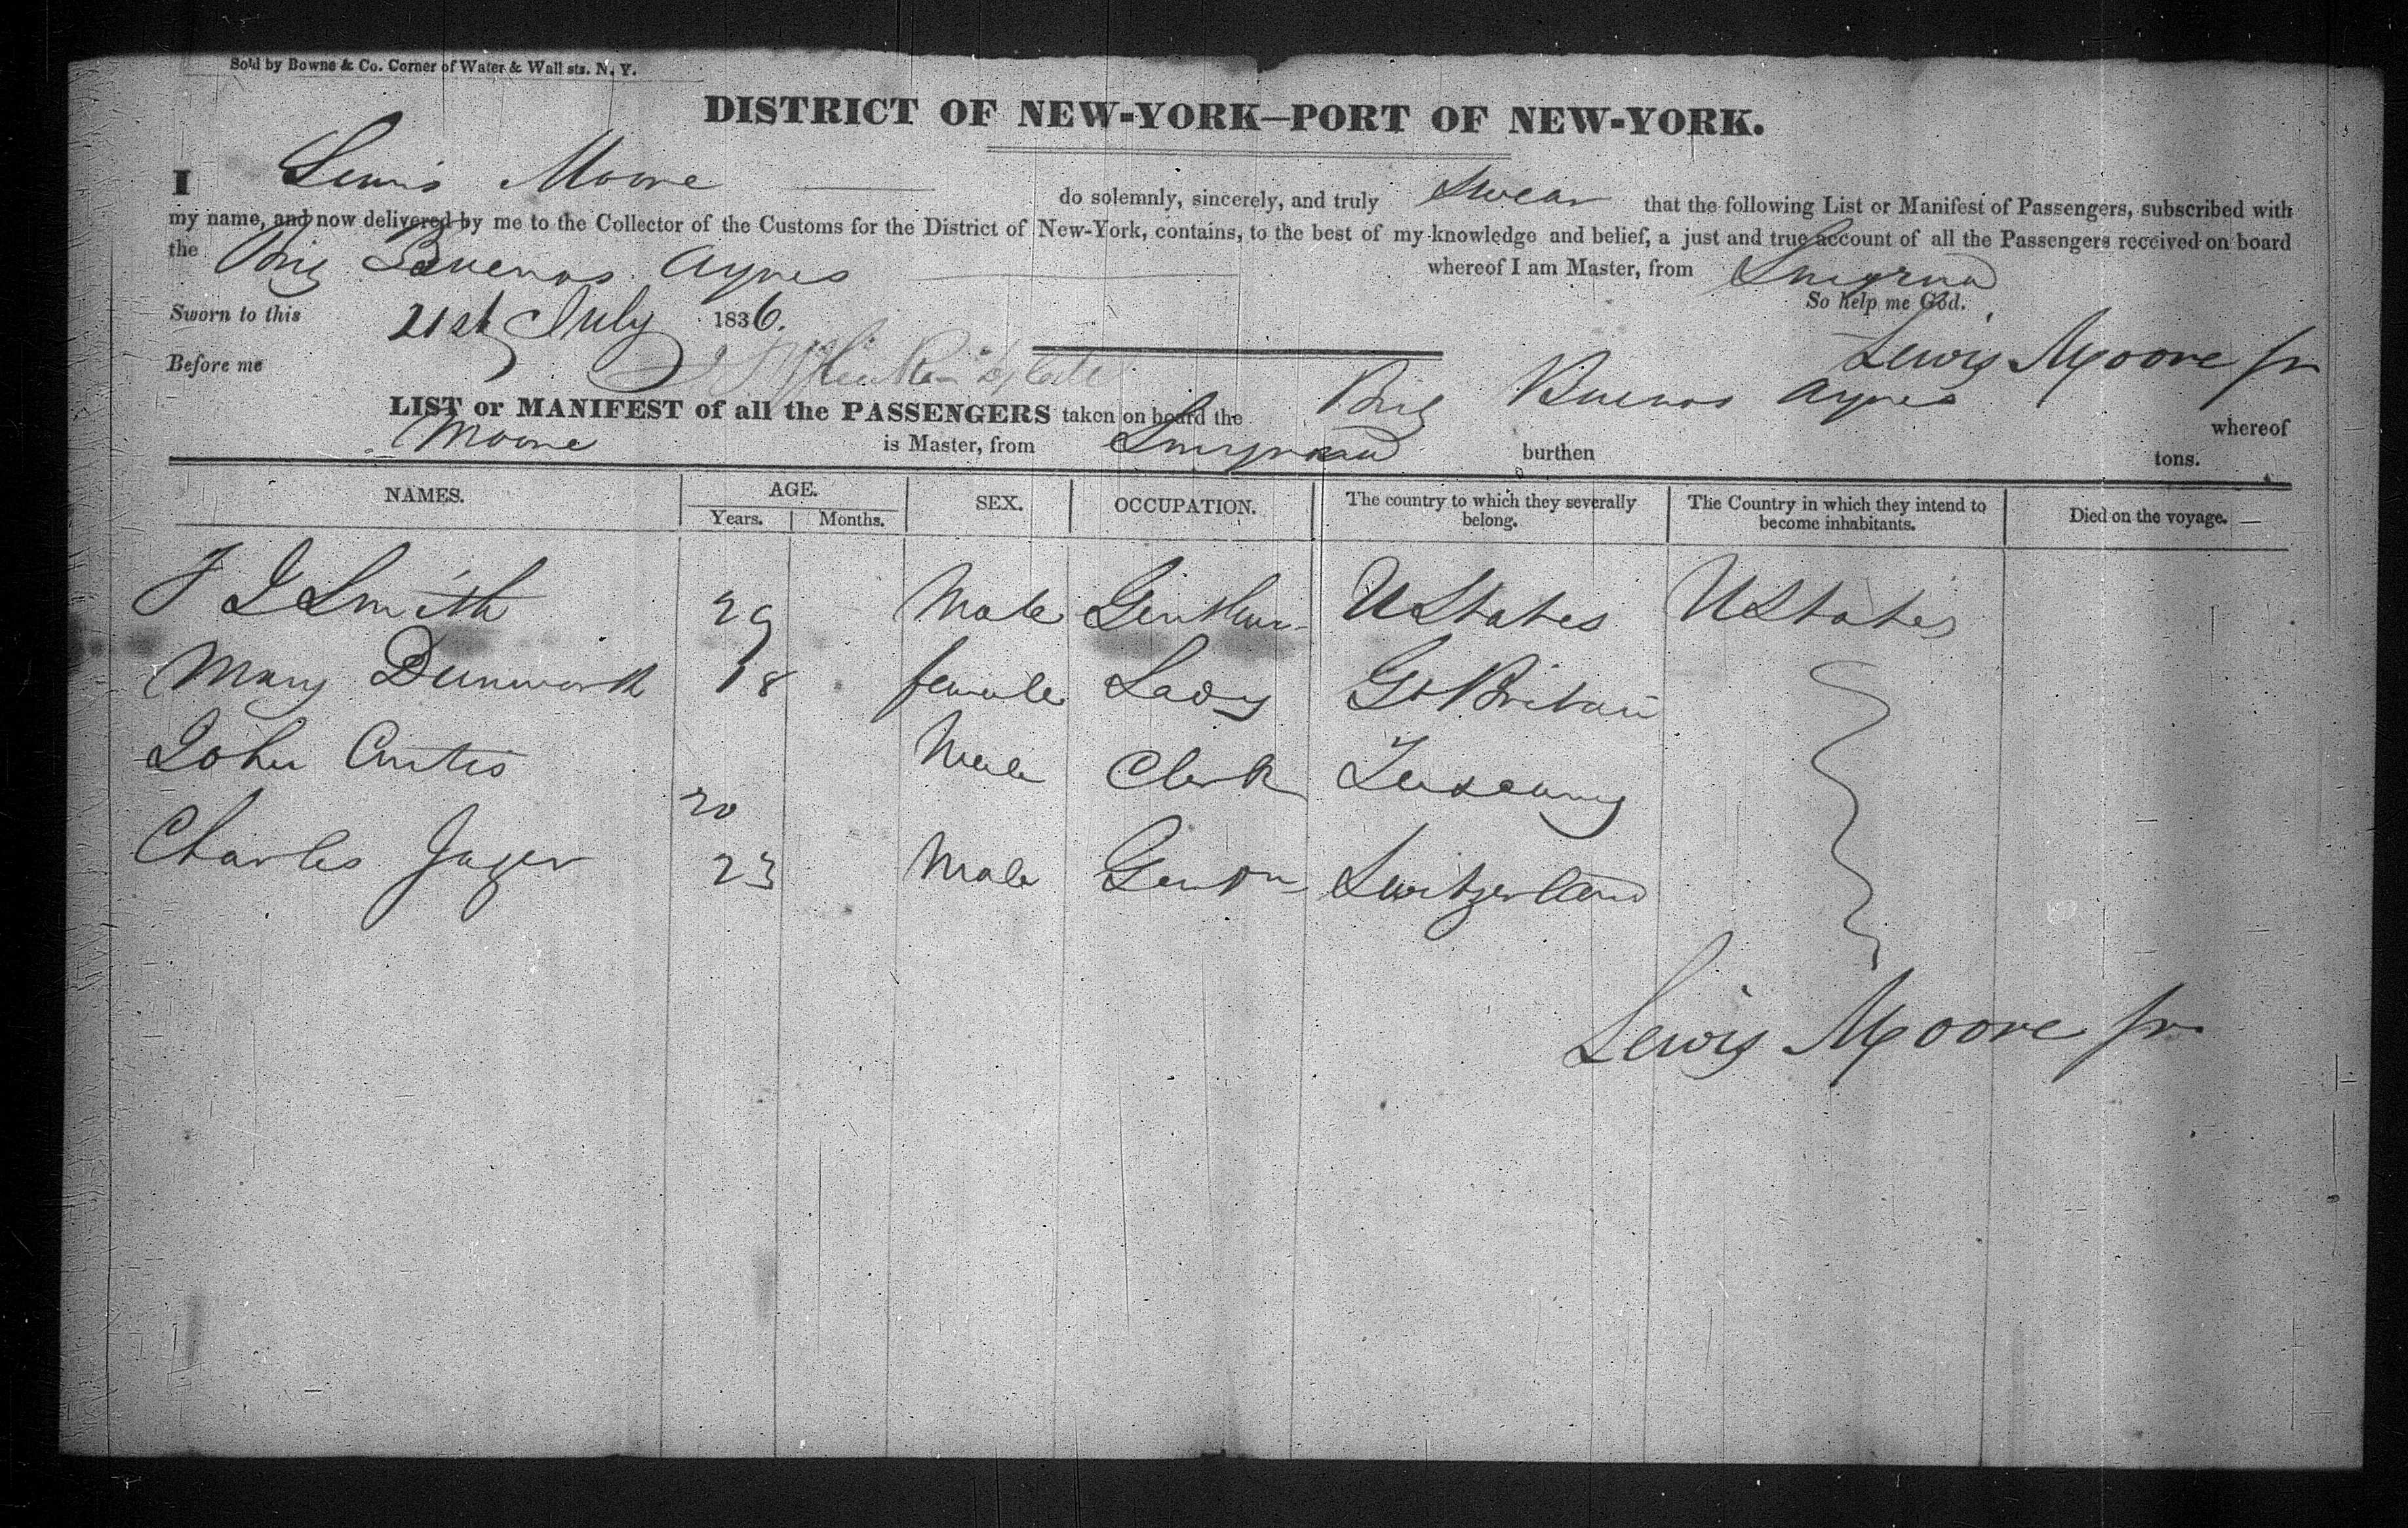 Sold by Bowne & Co. Corner of Water & Wall sts. N. Y.
DISTRICT OF NEW-YORK—PORT OF NEW-YORK.
I Lewis Moore do solemnly, sincerely, and truly Swear that the following List or Manifest of Passengers, subscribed with
my name, and now delivered by me to the Collector of the Customs for the District of New-York, contains, to the best of my knowledge and belief, a just and true account of all the Passengers received on board
the Brig Buenos Ayres whereof I am Master, from Smyrna
So help me God.
Sworn to this 21st July 1836.
Lewis Moore jr
Before me
LIST or MANIFEST of all the PASSENGERS taken on board the Brig Buenos Ayres whereof
Moore is Master, from Smyrna burthen tons.
NAMES. AGE. SEX. OCCUPATION. The country to which they severally belong. The Country in which they intend to become inhabitants. Died on the voyage.
Years. Months.
J Smith 29 Male Gentlem UStates UStates
Mary 18 female Lady Gt Britain
John Curtis 20 Male Clerk Tuscany
Charles Jager 23 Male Gentn Switzerland
Lewis Moore jr